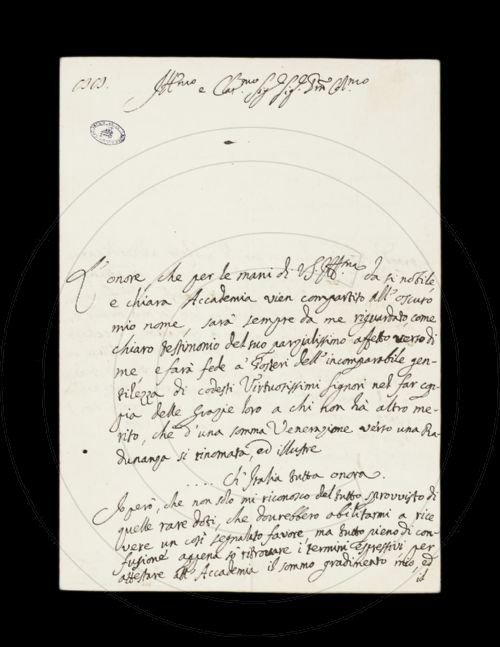 Ill.mo e Clar.mo Sig.r Sig.r Pron Col.mo
L'onore che per le mani di V.S. Ill.ma da si nobile,
e chiara Accademia vien compartito all'oscuro
mio nome, sarà sempre da me riguardato come
chiaro testimonio del suo parzialissimo affetto verso di
me e farà fede a' Posteri dell'incomparabile gen-
tilezza di codesti Virtuosissimi Signori nel far co-
pia delle Grazie loro a chi non hà altro me-
rito, che d'una somma Venerazione verso una Ra-
dunanza si rinomata, ed illustre
.... Ch'Italia tutta onora.
Io però, che non solo mi riconosco del tutto sprovvisto di
quelle rare doti, che dovrebbero abilitarmi a rice
vere un così segnalato favore, ma tutto pieno di con-
fusione appena sò ritrovare i termini espressivi per
attestare all'Accademia il sommo gradimento mio, ed
il